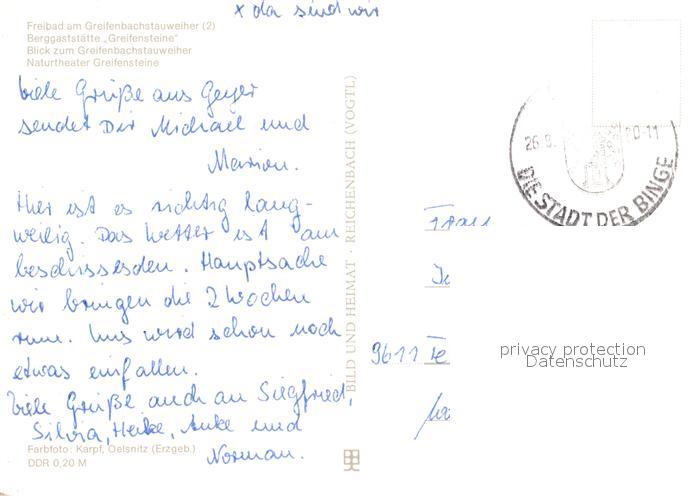 x da sind wir
Freibad am Greifenbachstauweiher (2)
Berggaststätte „Greifensteine"
Blick zum Greifenbachstauweiher
Naturtheater Greifensteine
Viele Grüße aus Geyer
sendet Dir Michael und
Marion.
Hier ist es richtig lang-
weilig. Das Wetter ist am
beschissesden. Hauptsache
wir bringen die 2 Wochen
rum. Uns wird schon noch
etwas einfallen.
Viele Grüße auch an Siegfried,
Silvia, Heike, Anke und
Norman.
Farbfoto: Karpf, Oelsnitz (Erzgeb.)
DDR 0,20 M
BILD UND HEIMAT · REICHENBACH (VOGTL)
26.8.
DIE STADT DER BINGE
Frau
9611
privacy protection
Datenschutz